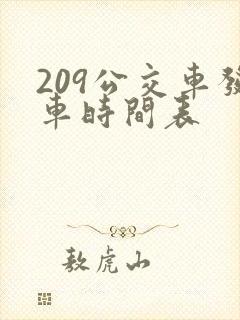 209公交車發
車時間表
敖虎山